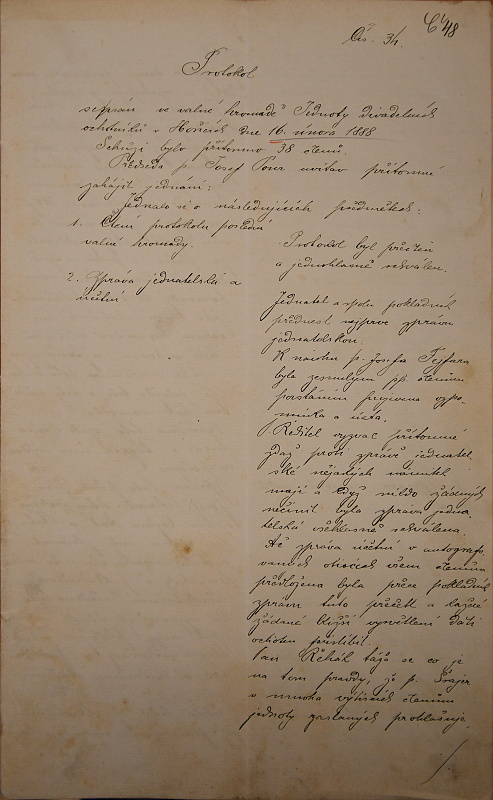 Čís. 34.
48
Protokol
sepsán ve valné hromadě Jednoty divadelních
ochotníků v Hořicích dne 16. února 1888
Schůzi bylo přítomno 38 členů.
Předseda p. Josef uvítav přítomné
zahájil jednání:
Jednalo se o následujících předmětech.
1. Čtení protokolu poslední
valné hromady.
Protokol byl přečten
a jednohlasně schválen.
2. Zpráva jednatelská a
účetní
Jednatel a spolu pokladník
přednesl nejprve zprávu
jednatelskou.
K návrhu p. Josefa Fejfara
byla zesnulým pp. členům
povstáním projevena vzpo-
mínka a úcta.
Ředitel vyzval přítomné
zdaž proti zprávě jednatel
ské nějakých námitek
mají a když nikdo žádných
nečinil byla zpráva jedna
telská všehlasně schválena.
Ač zpráva účetní v autografo
vaných otiscích všem členům
předložena byla přece pokladník
zprávu tuto přečetl a každé
žádané bližší vysvětlení dáti
ochoten přislíbil
Pan Řehák táže se co je
na tom pravdy, že p. Šrajer
v mnoha výtiscích členům
jednoty zaslaných prohlašuje
./.